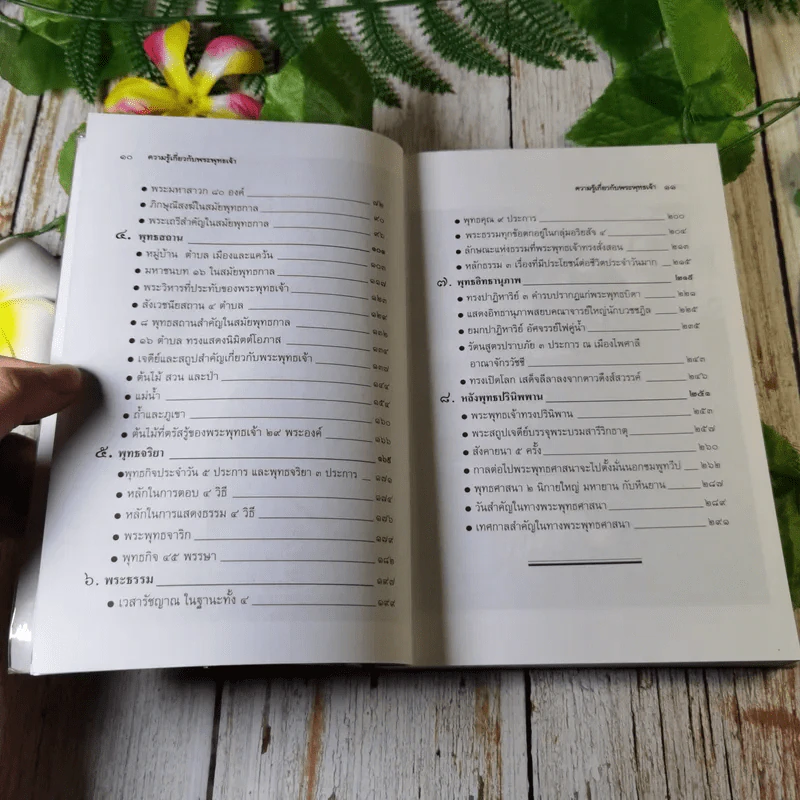 ๑๐ ความรู้เกี่ยวกับพระพุทธเจ้า
● พระมหาสาวก ๘๐ องค์ ๘๒
● ภิกษุณีสงฆ์ในสมัยพุทธกาล ๙๐
● พระเถรีสำคัญในสมัยพุทธกาล ๙๖
๔. พุทธสถาน ๑๐๑
● หมู่บ้าน ตำบล เมืองและแคว้น ๑๐๓
● มหาชนบท ๑๖ ในสมัยพุทธกาล ๑๐๘
● พระวิหารที่ประทับของพระพุทธเจ้า ๑๒๓
● สังเวชนียสถาน ๔ ตำบล ๑๒๙
● ๘ พุทธสถานสำคัญในสมัยพุทธกาล ๑๓๒
● ๑๖ ตำบล ทรงแสดงนิมิตต์โอภาส ๑๓๔
● เจดีย์และสถูปสำคัญเกี่ยวกับพระพุทธเจ้า ๑๓๙
● ต้นไม้ สวน และป่า ๑๔๔
● แม่น้ำ ๑๕๔
● ถ้ำและภูเขา ๑๖๐
● ต้นไม้ที่ตรัสรู้ของพระพุทธเจ้า ๒๙ พระองค์
๕. พุทธจริยา ๑๖๙
● พุทธกิจประจำวัน ๕ ประการ และพุทธจริยา ๓ ประการ ๑๗๑
● หลักในการตอบ ๔ วิธี ๑๗๔
● หลักในการแสดงธรรม ๔ วิธี ๑๗๖
● พระพุทธจาริก ๑๗๙
● พุทธกิจ ๔๕ พรรษา ๑๘๒
๖. พระธรรม ๑๙๗
● เวสารัชญาณ ในฐานะทั้ง ๔ ๑๙๙
ความรู้เกี่ยวกับพระพุทธเจ้า ๑๑
● พุทธคุณ ๙ ประการ ๒๐๐
● พระธรรมทุกข้อตกอยู่ในกลุ่มอริยสัจ ๔ ๒๐๔
● ลักษณะแห่งธรรมที่พระพุทธเจ้าทรงสั่งสอน ๒๑๓
● หลักธรรม ๓ เรื่องที่มีประโยชน์ต่อชีวิตประจำวันมาก ๒๑๕
๗. พุทธอิทธานุภาพ ๒๑๙
● ทรงปาฏิหาริย์ ๓ คำรบปรากฏแก่พระพุทธบิดา ๒๒๑
● แสดงอิทธานุภาพสยบคณาจารย์ใหญ่นักบวชชฎิล ๒๒๕
● ยมกปาฏิหาริย์ อัศจรรย์ไฟคู่น้ำ ๒๓๕
● รัตนสูตรปราบภัย ๓ ประการ ณ เมืองไพศาลี
อาณาจักรวัชชี ๒๔๓
● ทรงเปิดโลก เสด็จลีลาลงจากดาวดึงส์สวรรค์ ๒๔๖
๘. หลังพุทธปรินิพพาน ๒๕๑
● พระพุทธเจ้าทรงปรินิพาน ๒๕๓
● พระสถูปเจดีย์บรรจุพระบรมสารีริกธาตุ ๒๕๗
● สังคายนา ๕ ครั้ง ๒๖๐
● กาลต่อไปพระพุทธศาสนาจะไปตั้งมั่นนอกชมพูทวีป ๒๖๒
● พุทธศาสนา ๒ นิกายใหญ่ มหายาน กับหีนยาน ๒๘๗
● วันสำคัญในทางพระพุทธศาสนา ๒๘๙
● เทศกาลสำคัญในทางพระพุทธศาสนา ๒๙๑